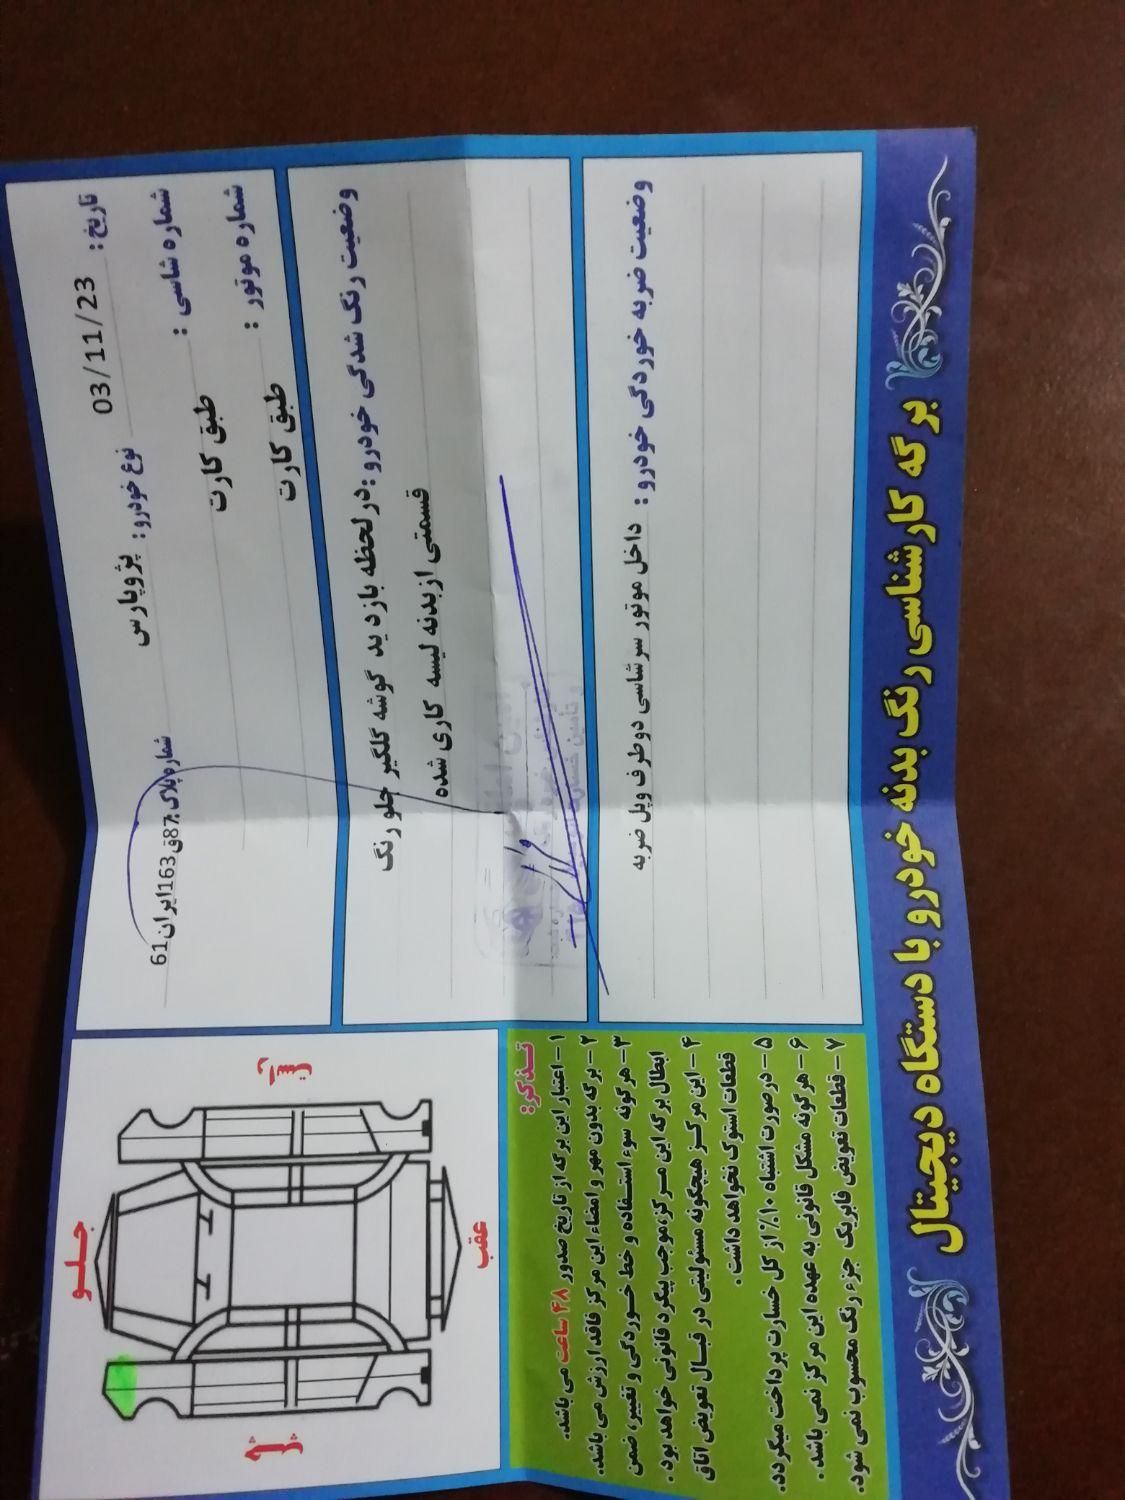 برگه کارشناسی رنگ بدنه خودرو با دستگاه دیجیتال
تاریخ: 03/11/23 نوع خودرو: پژوپارس شماره پلاک: 87ق163ایران61
شماره شاسی: طبق کارت
شماره موتور: طبق کارت
وضعیت رنگ شدگی خودرو: درلحظه بازدید گوشه گلگیر جلو رنگ
قسمتی ازبدنه لیسه کاری شده
وضعیت ضربه خوردگی خودرو: داخل موتور سرشاسی دوطرف وپل ضربه
جلو
عقب
تذکر:
۱- اعتبار این برگه از تاریخ صدور ۴۸ ساعت می باشد.
۲- برگه بدون مهر و امضاء این مرکز فاقد ارزش می باشد.
۳- هرگونه سوء استفاده و خط خوردگی و تغییر، ضمن
ابطال برگه این مرکز، موجب پیگرد قانونی خواهد بود.
۴- این مرکز هیچگونه مسئولیتی در قبال تعویض اتاق
قطعات استوک نخواهد داشت.
۵- درصورت اشتباه ۱۰٪ از کل خسارت پرداخت میگردد.
۶- هرگونه مشکل قانونی به عهده این مرکز نمی باشد.
۷- قطعات تعویض فابریک جزء رنگ محسوب نمی شود.